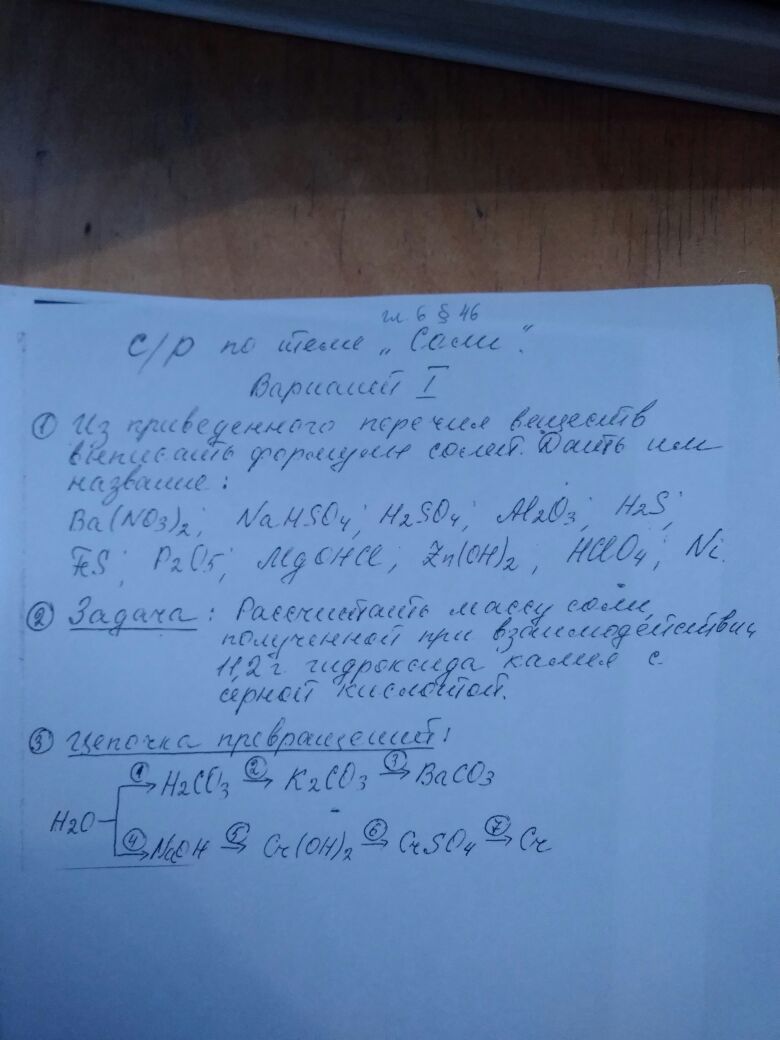 гл. 6 § 46
с/р по теме „Соли".
Вариант I
① Из приведенного перечня веществ
выписать формулы солей. Дать им
название:
Ba(NO3)2; NaHSO4; H2SO4; Al2O3; H2S;
FeS; P2O5; MgOHCl; Zn(OH)2; HClO4; Ni.
② Задача: Рассчитать массу соли,
полученной при взаимодействии
11,2 г. гидроксида калия с
серной кислотой.
③ Цепочка превращений:
① H2CO3 ② → K2CO3 ③ → BaCO3
H2O
④ NaOH ⑤ → Cr(OH)2 ⑥ → CrSO4 ⑦ → Cr